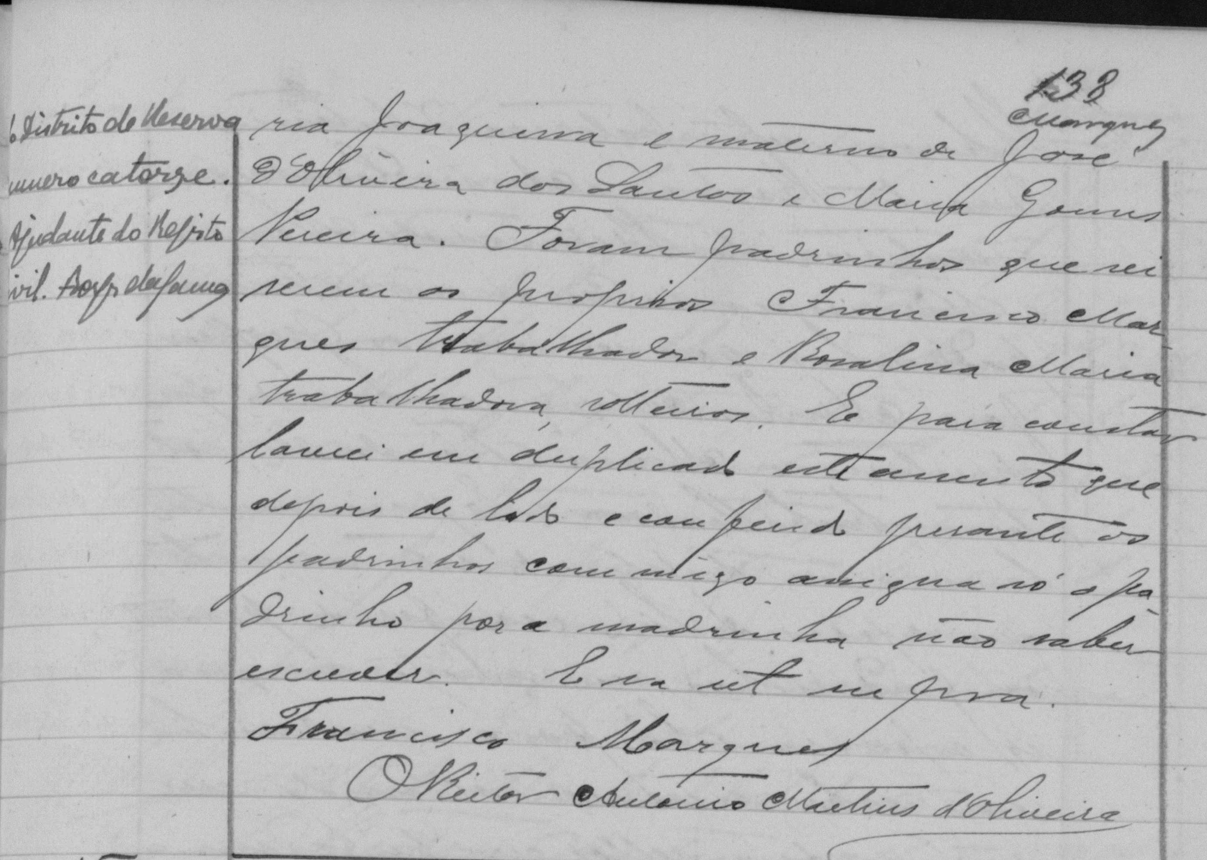 138
Marques
Distrito de Reserva
numero catorze.
Ajudante do Registo
ivil.
ria Joaquina e materno de José
d'Oliveira dos Santos e Maria Gomes
Pereira. Foram padrinhos que sei
serem os proprios Francisco Mar-
ques trabalhador e Rosalina Maria
trabalhadora, solteiros. E para constar
lavrei em duplicado este assento que
depois de lido e conferido perante os
padrinhos commigo assigna só o pa-
drinho por a madrinha não saber
escrever. Era ut supra.
Francisco Marques
O Reitor Antonio Martins d'Oliveira